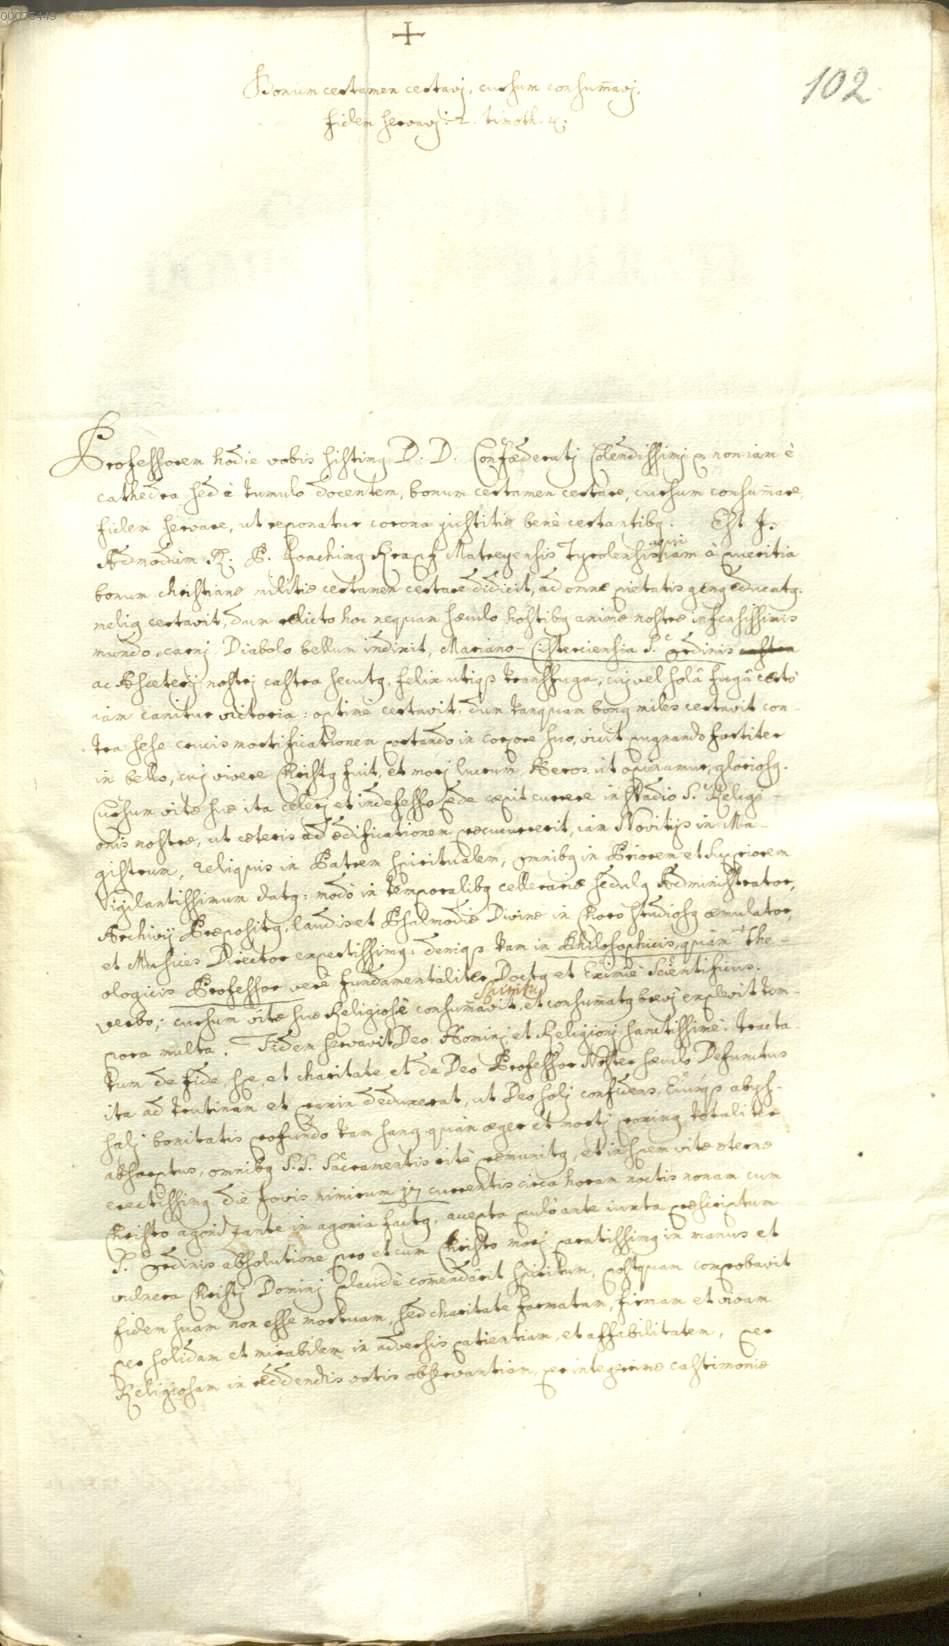 00025449
102
Bonum certamen certavj, cursum consum̄avj,
fidem servavj: 2. Timoth. 4.
Professorem hodie vobis sistimꝰ D. D. Confœderatj Colendissimj non iam è
cathedra sed è tumulo docentem, bonum certamen certare, cursum consum̄are,
fidem servare, ut reponatur corona iustitiæ benè certantibꝰ. Est
Admodùm R. P. Joachimꝰ Krapf Matreyensis Tyrolensis, qui iam à pueritia
bonum christianæ militiæ certamen certare didicit, ad omne pietatis genꝰ educatꝰ.
meliꝰ certavit, dum relicto hoc nequam sæculo hostibꝰ animæ nostræ infensissimis
mundo, carnj Diabolo bellum indixit, Mariano-Cisterciensia S. Ordinis
ac Asceterij nostrj castra secutꝰ. felix utiqꝫ transfuga, cuj vel solâ fugâ certò
iam canitur victoria: optimè certavit, dum tanquam bonꝰ miles certavit con-
tra sese crucis mortificationem portando in corpore suo, vicit pugnando fortiter
in bello, cuj vivere Christꝰ fuit, et morj lucrum, Heros ut opinamur, gloriosꝰ.
Cursum vitæ suæ ita celerj et indefesso pede cœpit currere in stadio S. Religi-
onis nostræ, ut cæteris ad ædificationem præcucurrerit, iam Novitijs in Ma-
gistrum, reliquis in Patrem spiritualem, omnibꝰ in Priorem et Superiorem
Vigilantissimum datꝰ: modò in temporalibꝰ cellerariæ sedulꝰ Administrator,
Archivij Præpositꝰ, laudis et Psalmodiæ Divinæ in choro studiosꝰ æmulator,
et Musices Director expertissimꝰ. deniqꝫ tam in Philosophicis, quàm The-
ologicis Professor verè fundamentaliter Doctꝰ et Eximiè Scientificus.
verbo: cursum vitæ suæ Religiosè consum̄avit, et consum̄atꝰ brevj explevit tem-
pora multa. Fidem servavit Deo, Hominj et Religionj sanctissimè: tracta-
tum de fide, spe, et charitate et de Deo Professor Noster sæculo Defunctus
ita ad trutinam et praxin deduxerat, ut Deo solj confidens, Eiusqꝫ abys-
salj bonitatis profundo tam sanꝰ quàm æger et mortj proximꝰ totaliter
absorptus, omnibꝰ S.S. Sacramentis ritè præmunitꝰ, et in spem vitæ æternæ
erectissimꝰ die Jovis nimirum 17 currentis circa horam noctis nonam cum
Christo agonizante in agonia factꝰ, accepta paulò ante iuxta præscriptum
S. Ordinis absolutione pro et cum Christo morj paratissimꝰ in manus et
vulnera Christj Dominj plaudè com̄endârit spiritum, postquam comprobavit
fidem suam non esse mortuam, sed charitate formatam, firmam et vivam
per solidam et mirabilem in adversis patientiam, et affabilitatem, per
Religiosam in reddendis votis observantiam, per integerrimæ castimoniæ